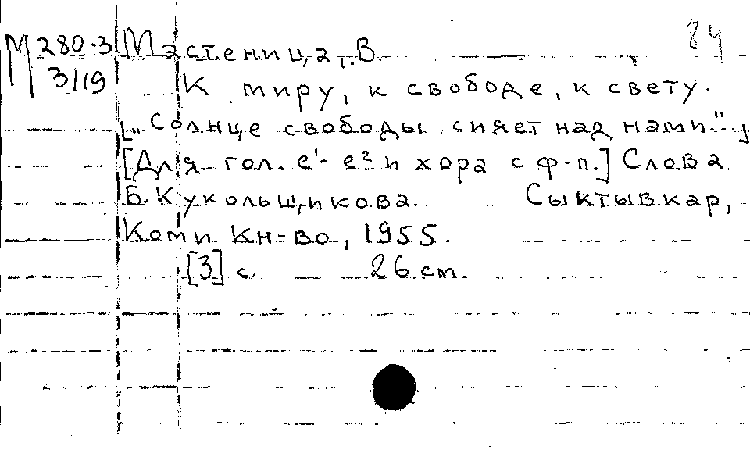 84
М 280-3 Мастеница, В.
3/19 К миру, к свободе, к свету.
[„Солнце свободы сияет над нами“]
[Для гол. e¹- e² и хора с ф-п.] Слова
Б. Кукольщикова. Сыктывкар,
Коми кн-во, 1955.
[3] с. 26 см.